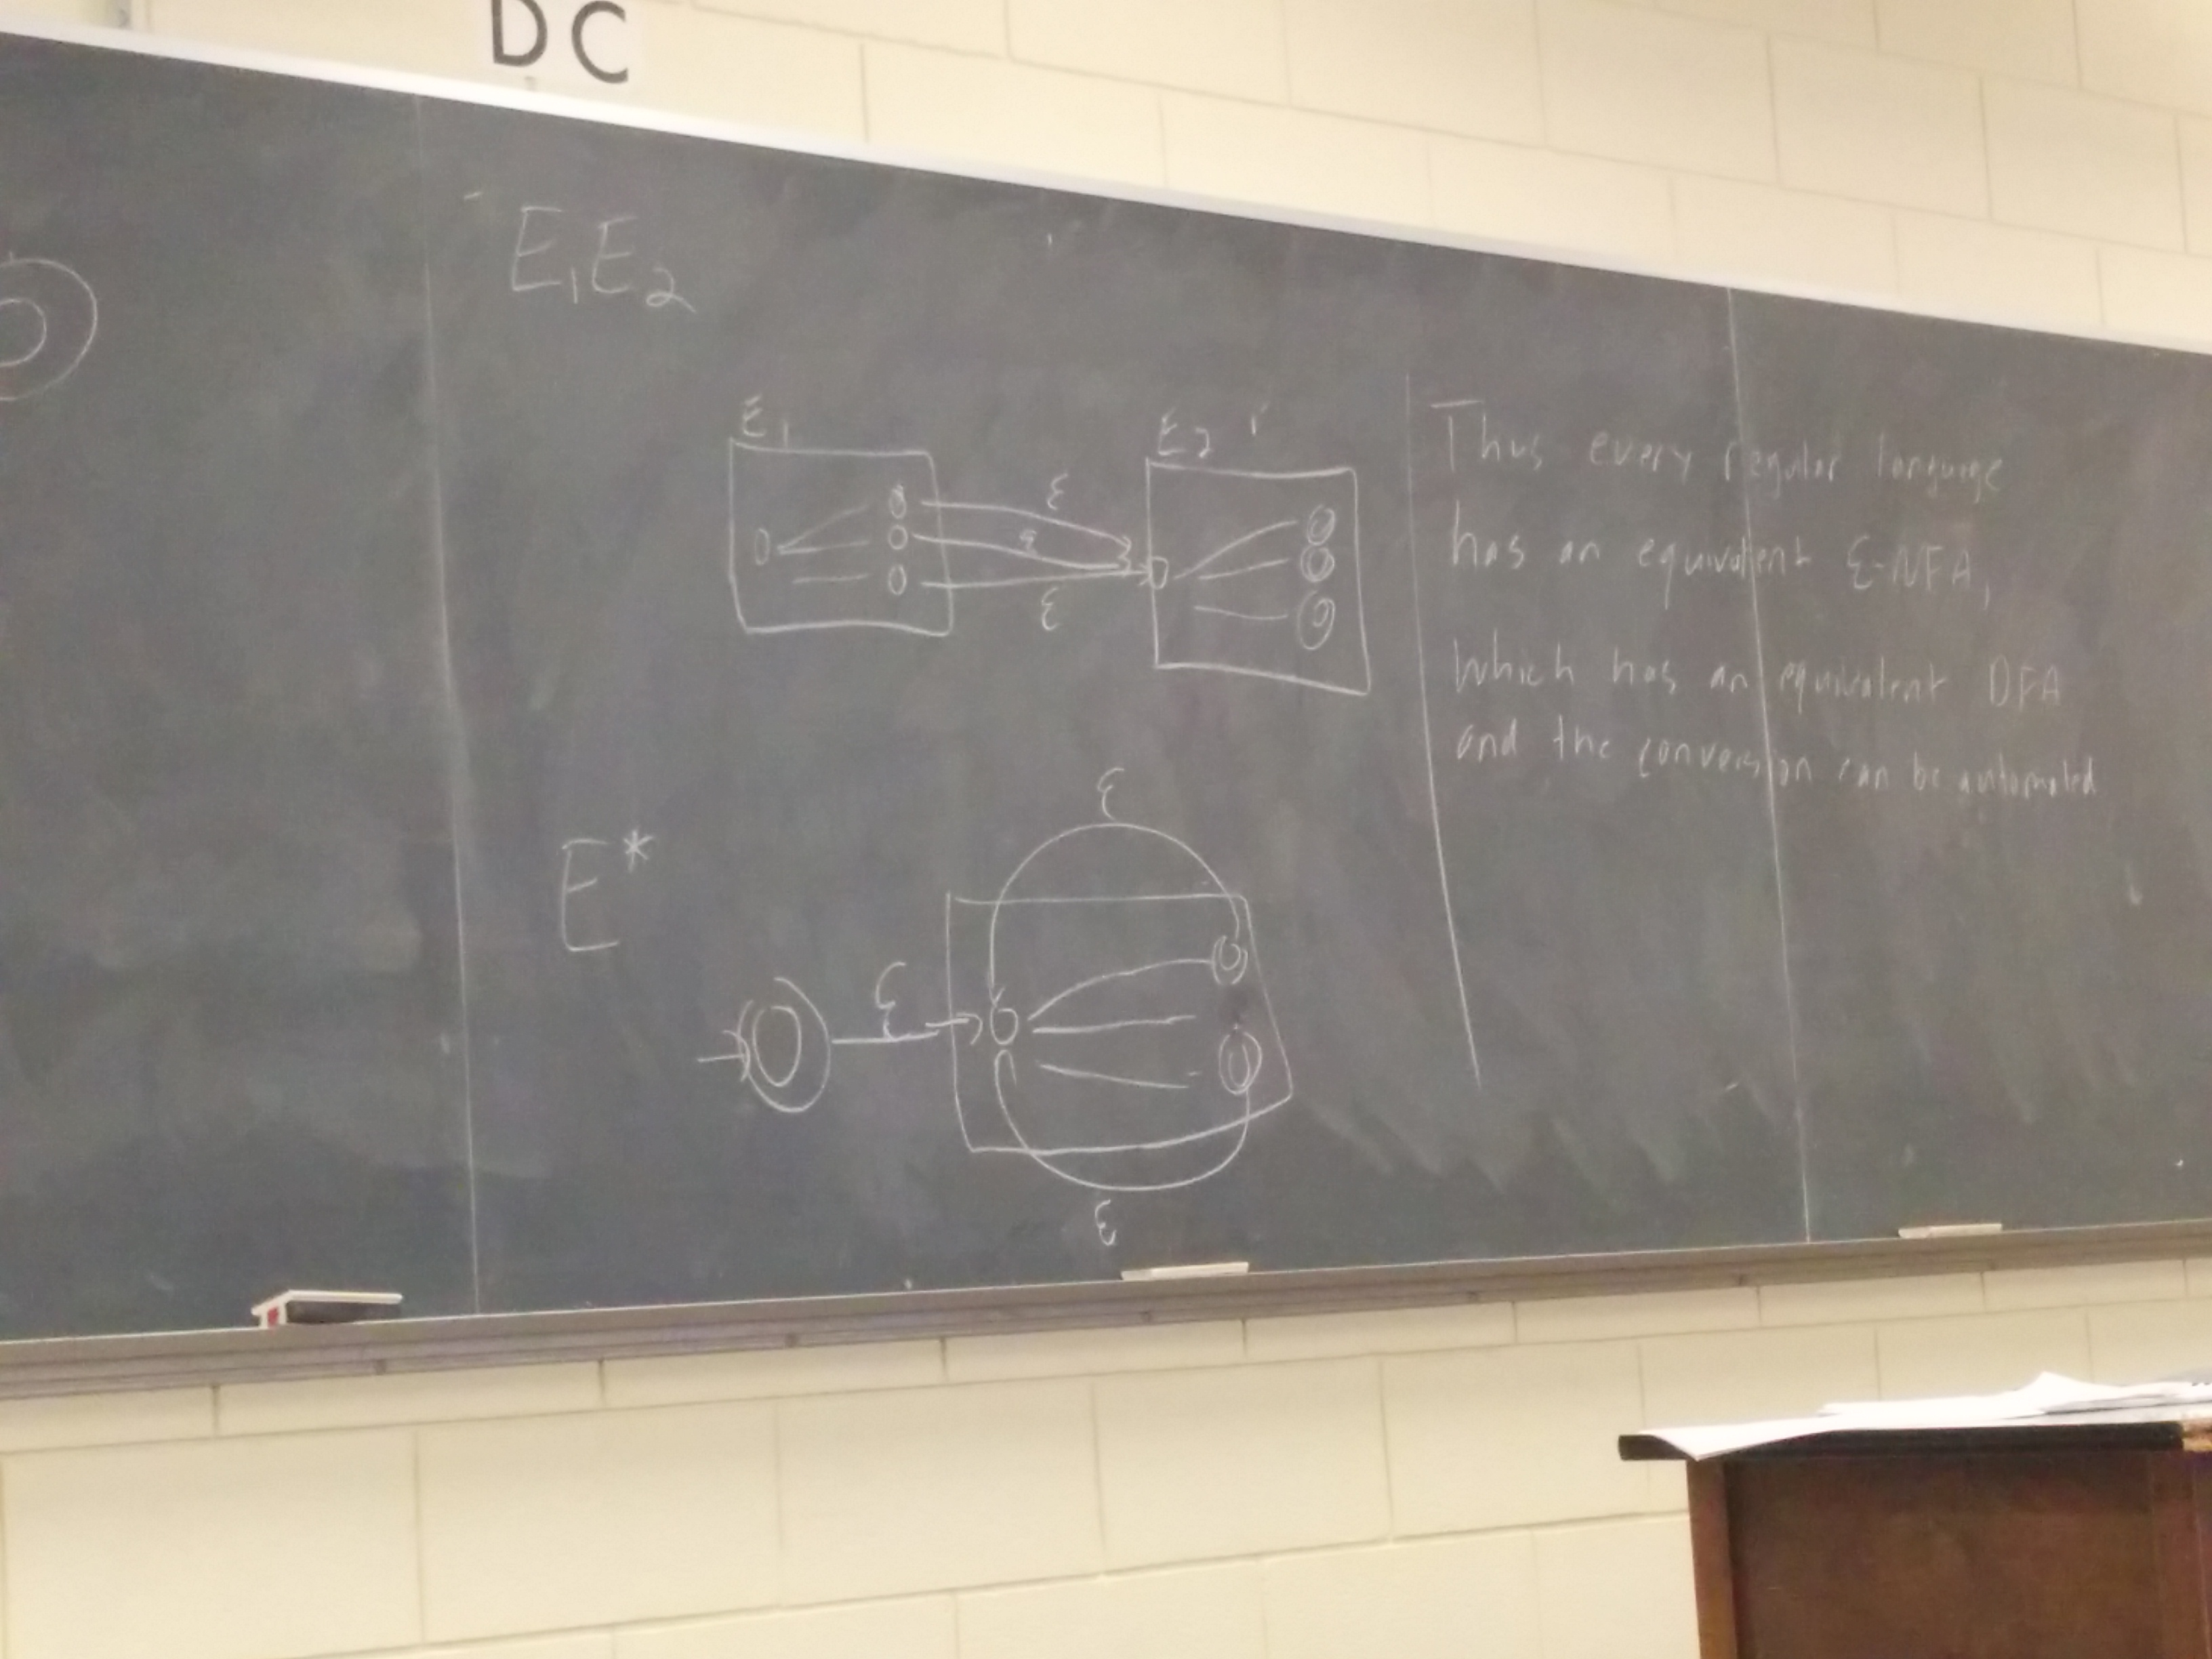 DC
E₁E₂
E₁
E₂
ε
ε
ε
Thus every regular language
has an equivalent ε-NFA,
which has an equivalent DFA
and the conversion can be automated
E*
ε
ε
ε